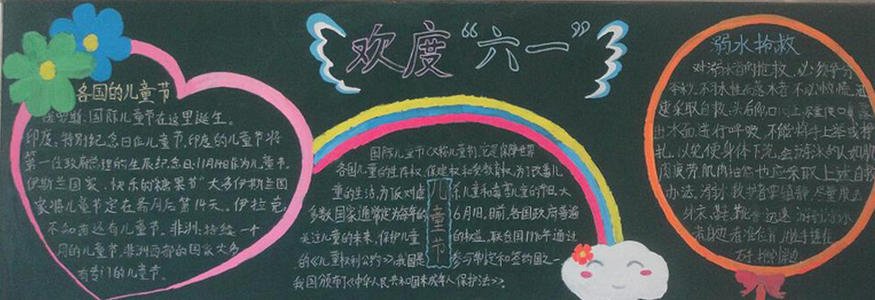 欢度“六一”
各国的儿童节
俄罗斯:国际儿童节在这里诞生。
印度:特别纪念日作儿童节,印度的儿童节将
第一任政府总理的生辰纪念日:11月14日作为儿童节。
伊斯兰国家:快乐的“糖果节”大多伊斯兰国
家将儿童节定在斋月后第14天。伊拉克,
不知有这有儿童节。非洲:持续一个
月的儿童节,非洲西部的国家大多
有专门的儿童节。
国际儿童节(又称儿童节)它是保障世界
各国儿童的生存权、保健权和受教育权,为了改善儿
童的生活,为了反对虐杀儿童和毒害儿童的节日。大
多数国家通常定为每年的6月1日。目前,各国政府普遍
关注儿童的未来,保护儿童的权益。联合国1990年通过
的《儿童权利公约》,我国是参与制定和签约国之一,
我国颁布了《中华人民共和国未成年人保护法》。
儿童节
溺水抢救
对溺水者的抢救,必须争分
夺秒。不习水性而落水者,不必心慌,迅
速采取自救:头后仰,口向上,尽量使口鼻
出水面,进行呼吸,不能将手上举或挣
扎,以免使身体下沉。会游泳的人如肌
肉疲劳肌肉抽筋也应采取上述自救
办法。溺水救护者要镇静,尽量脱去
外衣、鞋、靴等,迅速游到溺水
者附近,看准位置,